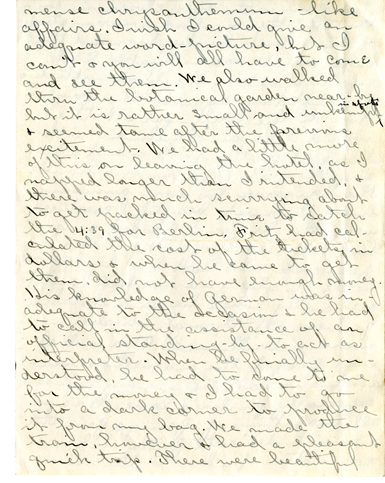 mense chrysanthemum-like
affairs. I wish I could give an
adequate word-picture, but I
can't & you will all have to come
and see them. We also walked
thru the botanical garden near-by
but it is rather small and in spots
& seemed tame after the previous
excitement. We had a little more
of this on leaving the hotel, as I
napped longer than I intended, &
there was much scurrying about
to get packed in time to catch
the 4:39 for Berlin. Frit had cal-
culated the cost of the tickets in
dollars & when he came to get
them, did not have enough money.
His knowledge of German was in-
adequate to the occasion & he had
to call in the assistance of an
official standing-by to act as
interpreter. When he finally un-
derstood, he had to come to me
for the money & I had to go
into a dark corner to produce
it from my bag. We made the
train, however & had a pleasant
quick trip. There were beautiful